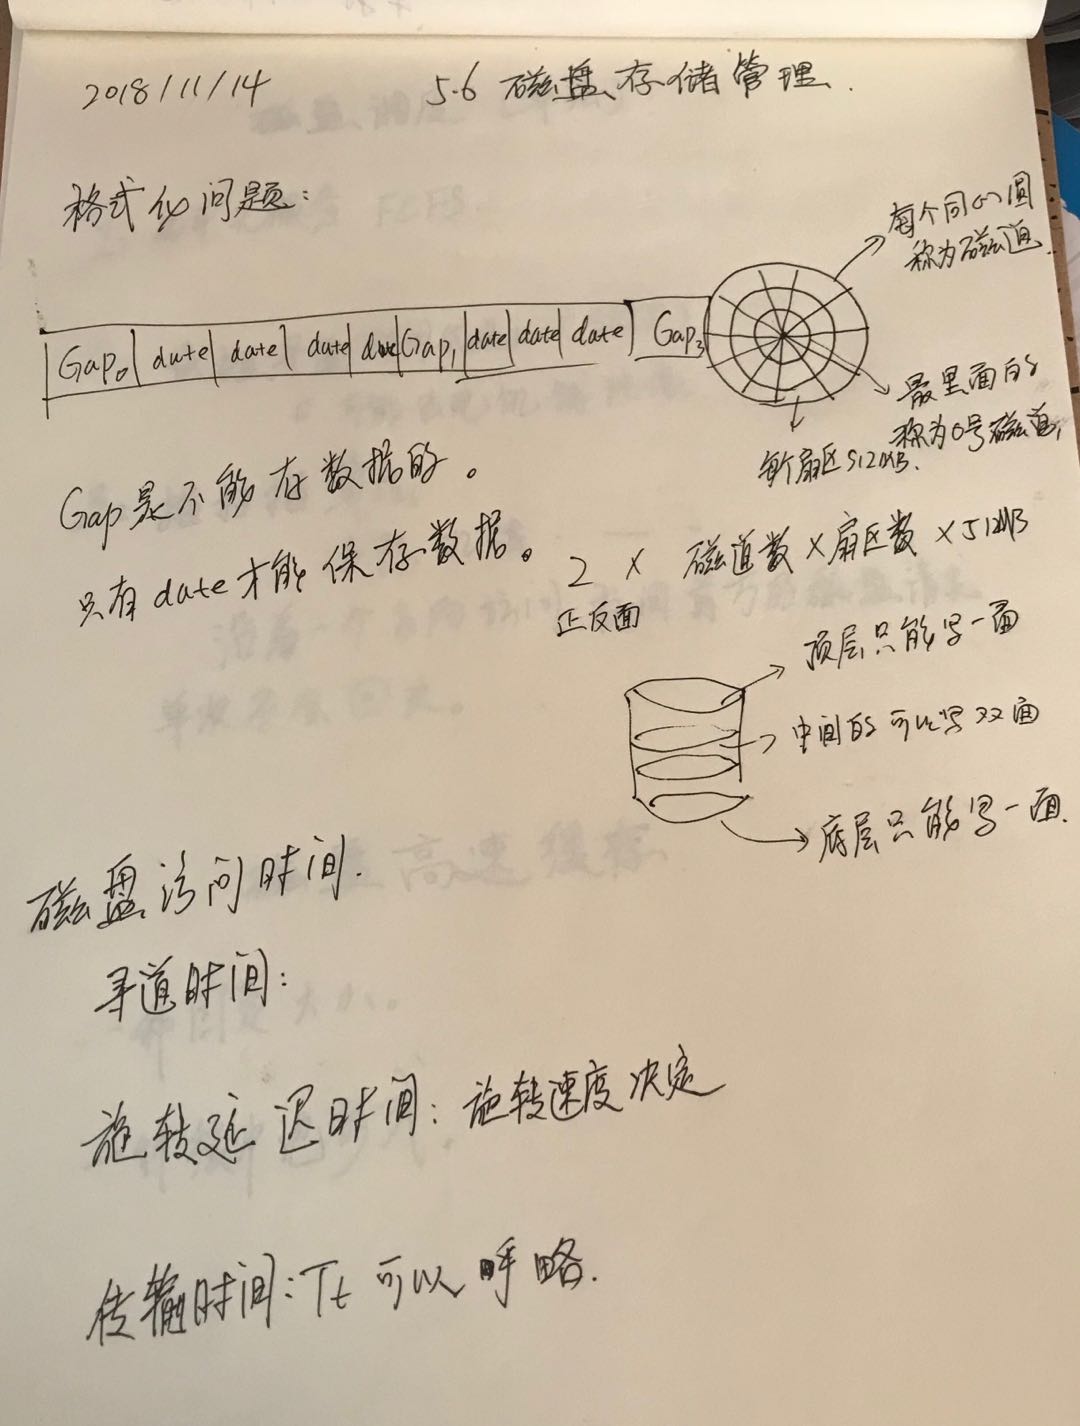 2018/11/14 5.6 磁盘存储管理.
格式化问题:
每个同心圆
称为磁道.
Gap₀ date date date date Gap₁ date date date Gap₃
最里面的
称为0号磁道,
每个扇区512MB.
Gap是不能存数据的。
只有date才能保存数据。
2 × 磁道数×扇区数×512MB
正反面
顶层只能写一面
中间的可以写双面
底层只能写一面.
磁盘访问时间.
寻道时间:
旋转延迟时间: 旋转速度决定
传输时间: Tt 可以呼略.